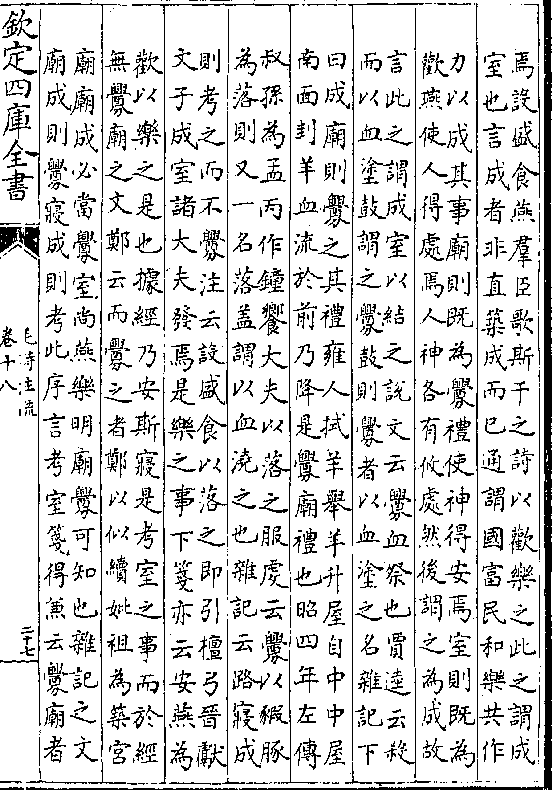 焉設盛食燕羣臣歌斯干之詩以歡樂之此之謂成
室也言成者非直築成而已通謂國富民和樂共作
力以成其事廟則既為釁禮使神得安焉室則既為
歡燕使人得處焉人神各有攸處然後謂之為成故
言此之謂成室以結之說文云釁血祭也賈逵云殺
而以血塗鼓謂之釁鼓則釁者以血塗之名雜記下
曰成廟則釁之其禮雍人拭羊舉羊升屋自中中屋
南面刲羊血流於前乃降是釁廟禮也昭四年左傳
叔孫為孟丙作鐘饗大夫以落之服虔云釁以豭豚
為落則又一名落盖謂以血澆之也雜記云路寢成
則考之而不釁注云設盛食以落之即引檀弓晉獻
文子成室諸大夫發焉是樂之事下箋亦云安燕為
歡以樂之是也據經乃安斯寢是考室之事而於經
無釁廟之文鄭云而釁之者鄭以似續妣祖為築宫
廟廟成必當釁室尚燕樂明廟釁可知也雜記之文
廟成則釁寢成則考此序言考室箋得兼云釁廟者
欽定四庫全書
毛詩注疏
卷十八
二十七